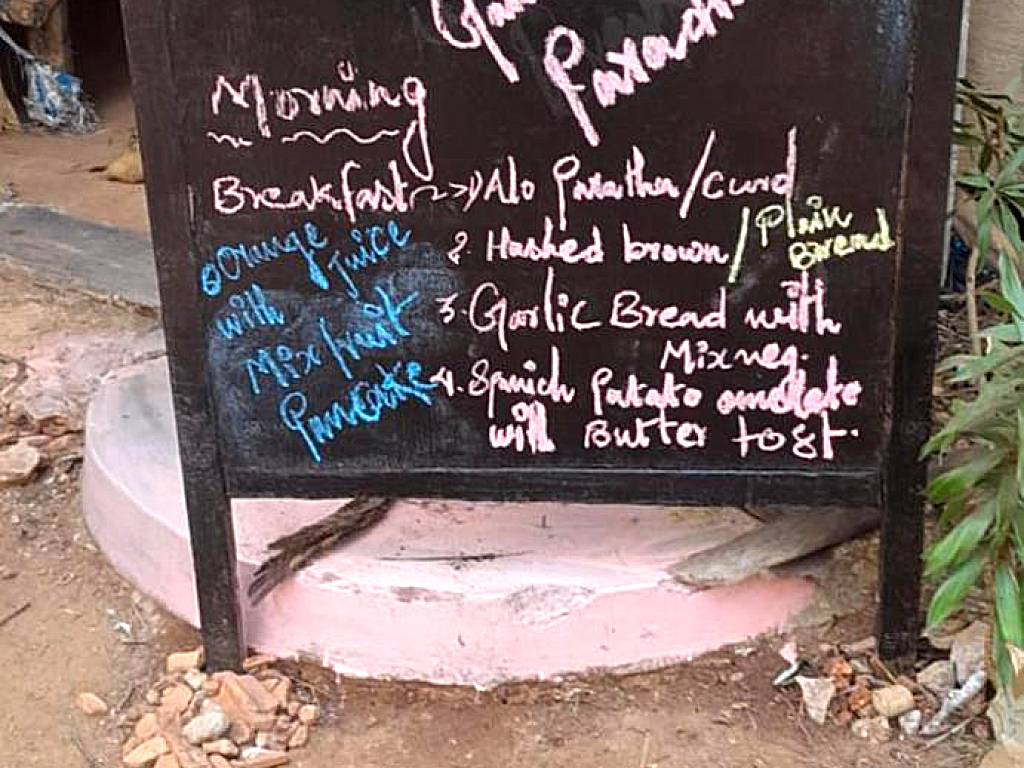 Morning
Breakfast ~>1) Alo Paratha / Curd
2. Hashed brown / Plain Bread
3. Garlic Bread with
Mix veg.
4. Spanich Patato omelete
with Butter tost.
Orange
Juice
with
Mix fruit
Pancake